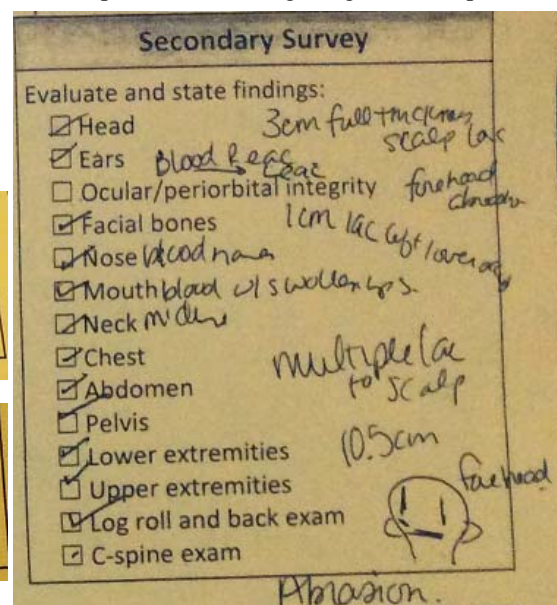 Secondary Survey
Evaluate and state findings:
Head 3cm full thickness
scalp lac
Ears Blood R eac
L eac
Ocular/periorbital integrity forehead
Facial bones 1cm lac left lower
Nose blood nares
Mouth blood w/ swollen lips.
Neck
Chest multiple lac
to scalp
Abdomen
Pelvis
Lower extremities 10.5cm
Upper extremities forehead
Log roll and back exam
C-spine exam
Abrasion.